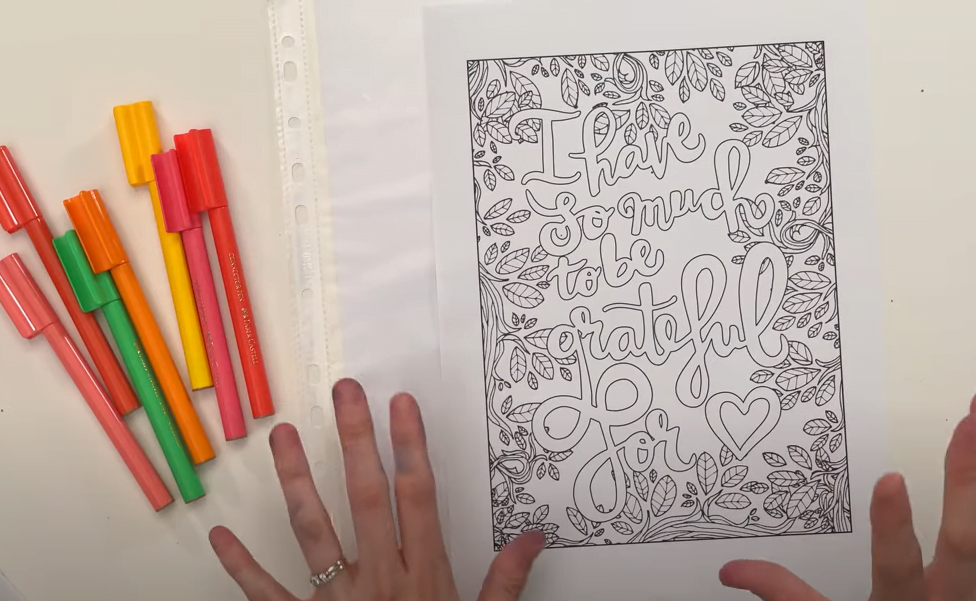 I have
so much
to be
grateful
for